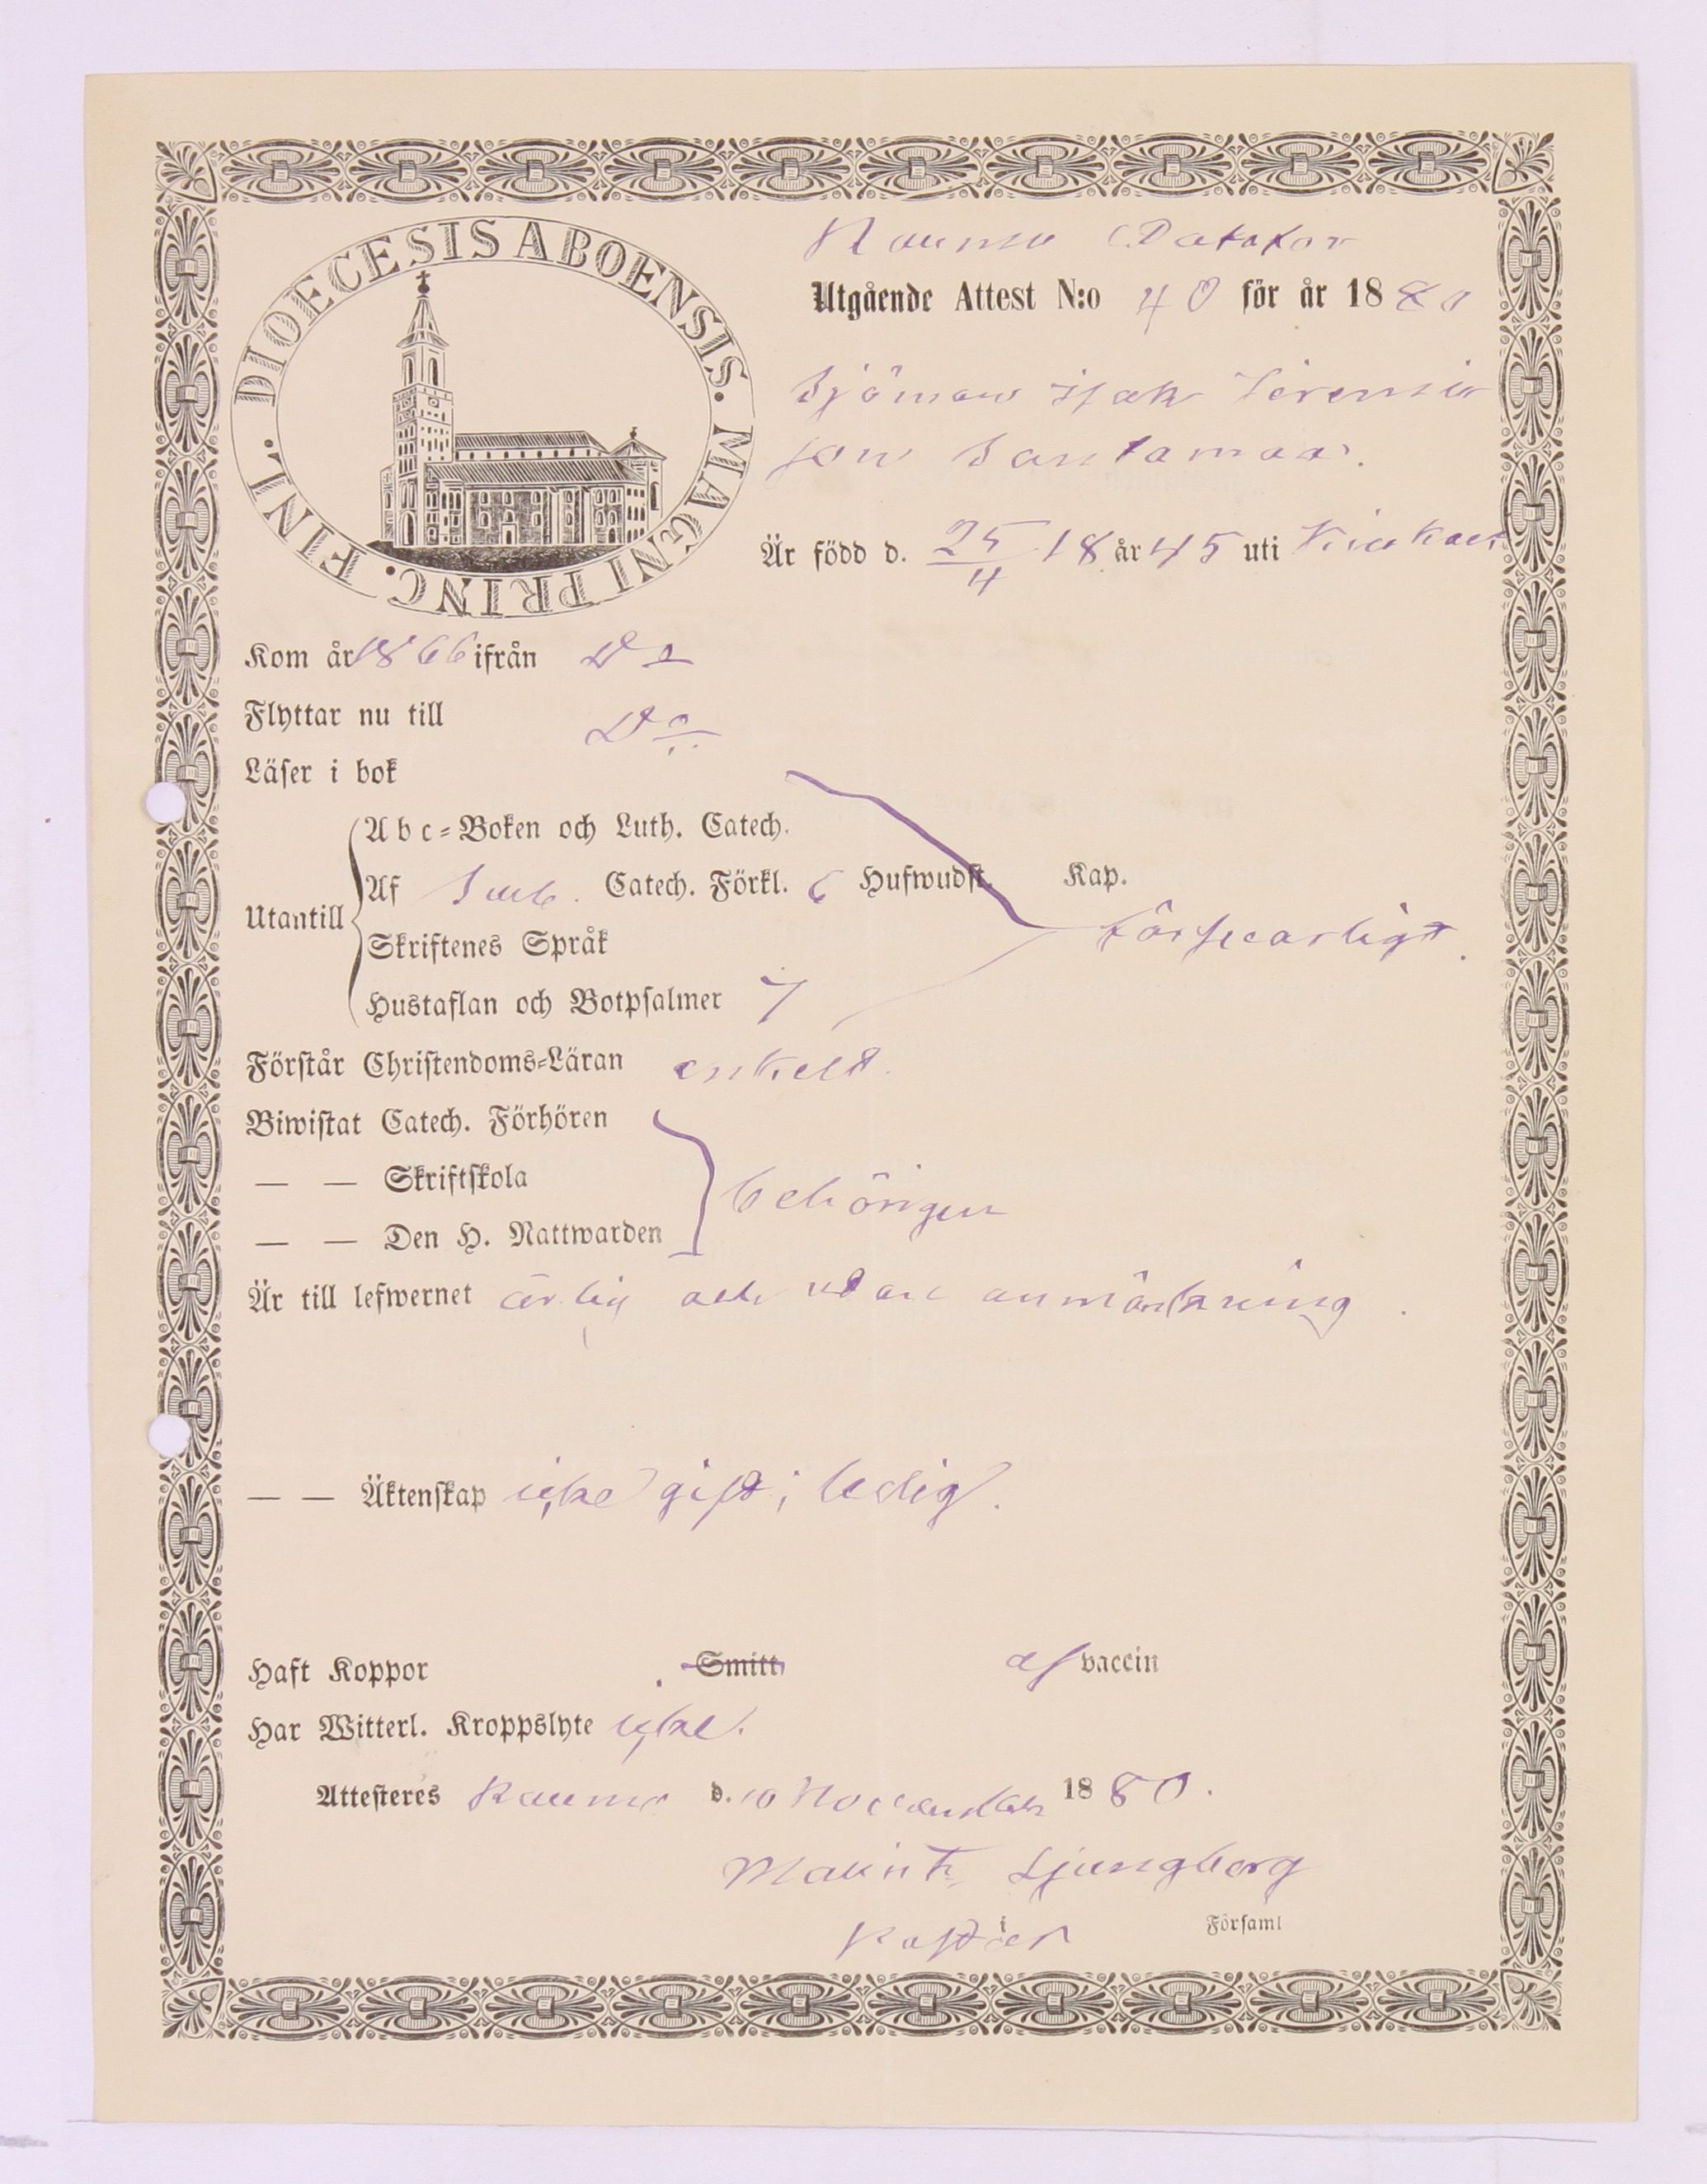 DIOECESIS ABOENSIS. MAGNI PRINC. FINL.
Raumo
Utgående Attest N:o 40 för år 1880
Sjöman Isak Jeremias
son Santamaa.
Är född d. 25/4 18 år 45 uti
Kom år 1866 ifrån Do
Flyttar nu till Do
Läser i bok
Abc-Boken och Luth. Catech.
Utantill
Af Catech. Förkl. 6 Hufwudst. Kap.
försvarligt.
Skriftenes Språk
Hustaflan och Botpsalmer 7
Förstår Christendoms-Läran enkelt.
Biwistat Catech. Förhören
— — Skriftskola
behörigen
— — Den H. Nattwarden
Är till lefwernet ärlig och utan anmärkning.
— — Äktenskap icke gift; ledig.
Haft Koppor Smitt af vaccin
Har Witterl. Kroppslyte icke.
Attesteres Raumo d. 10 November 1880.
Ljungberg
i Församl